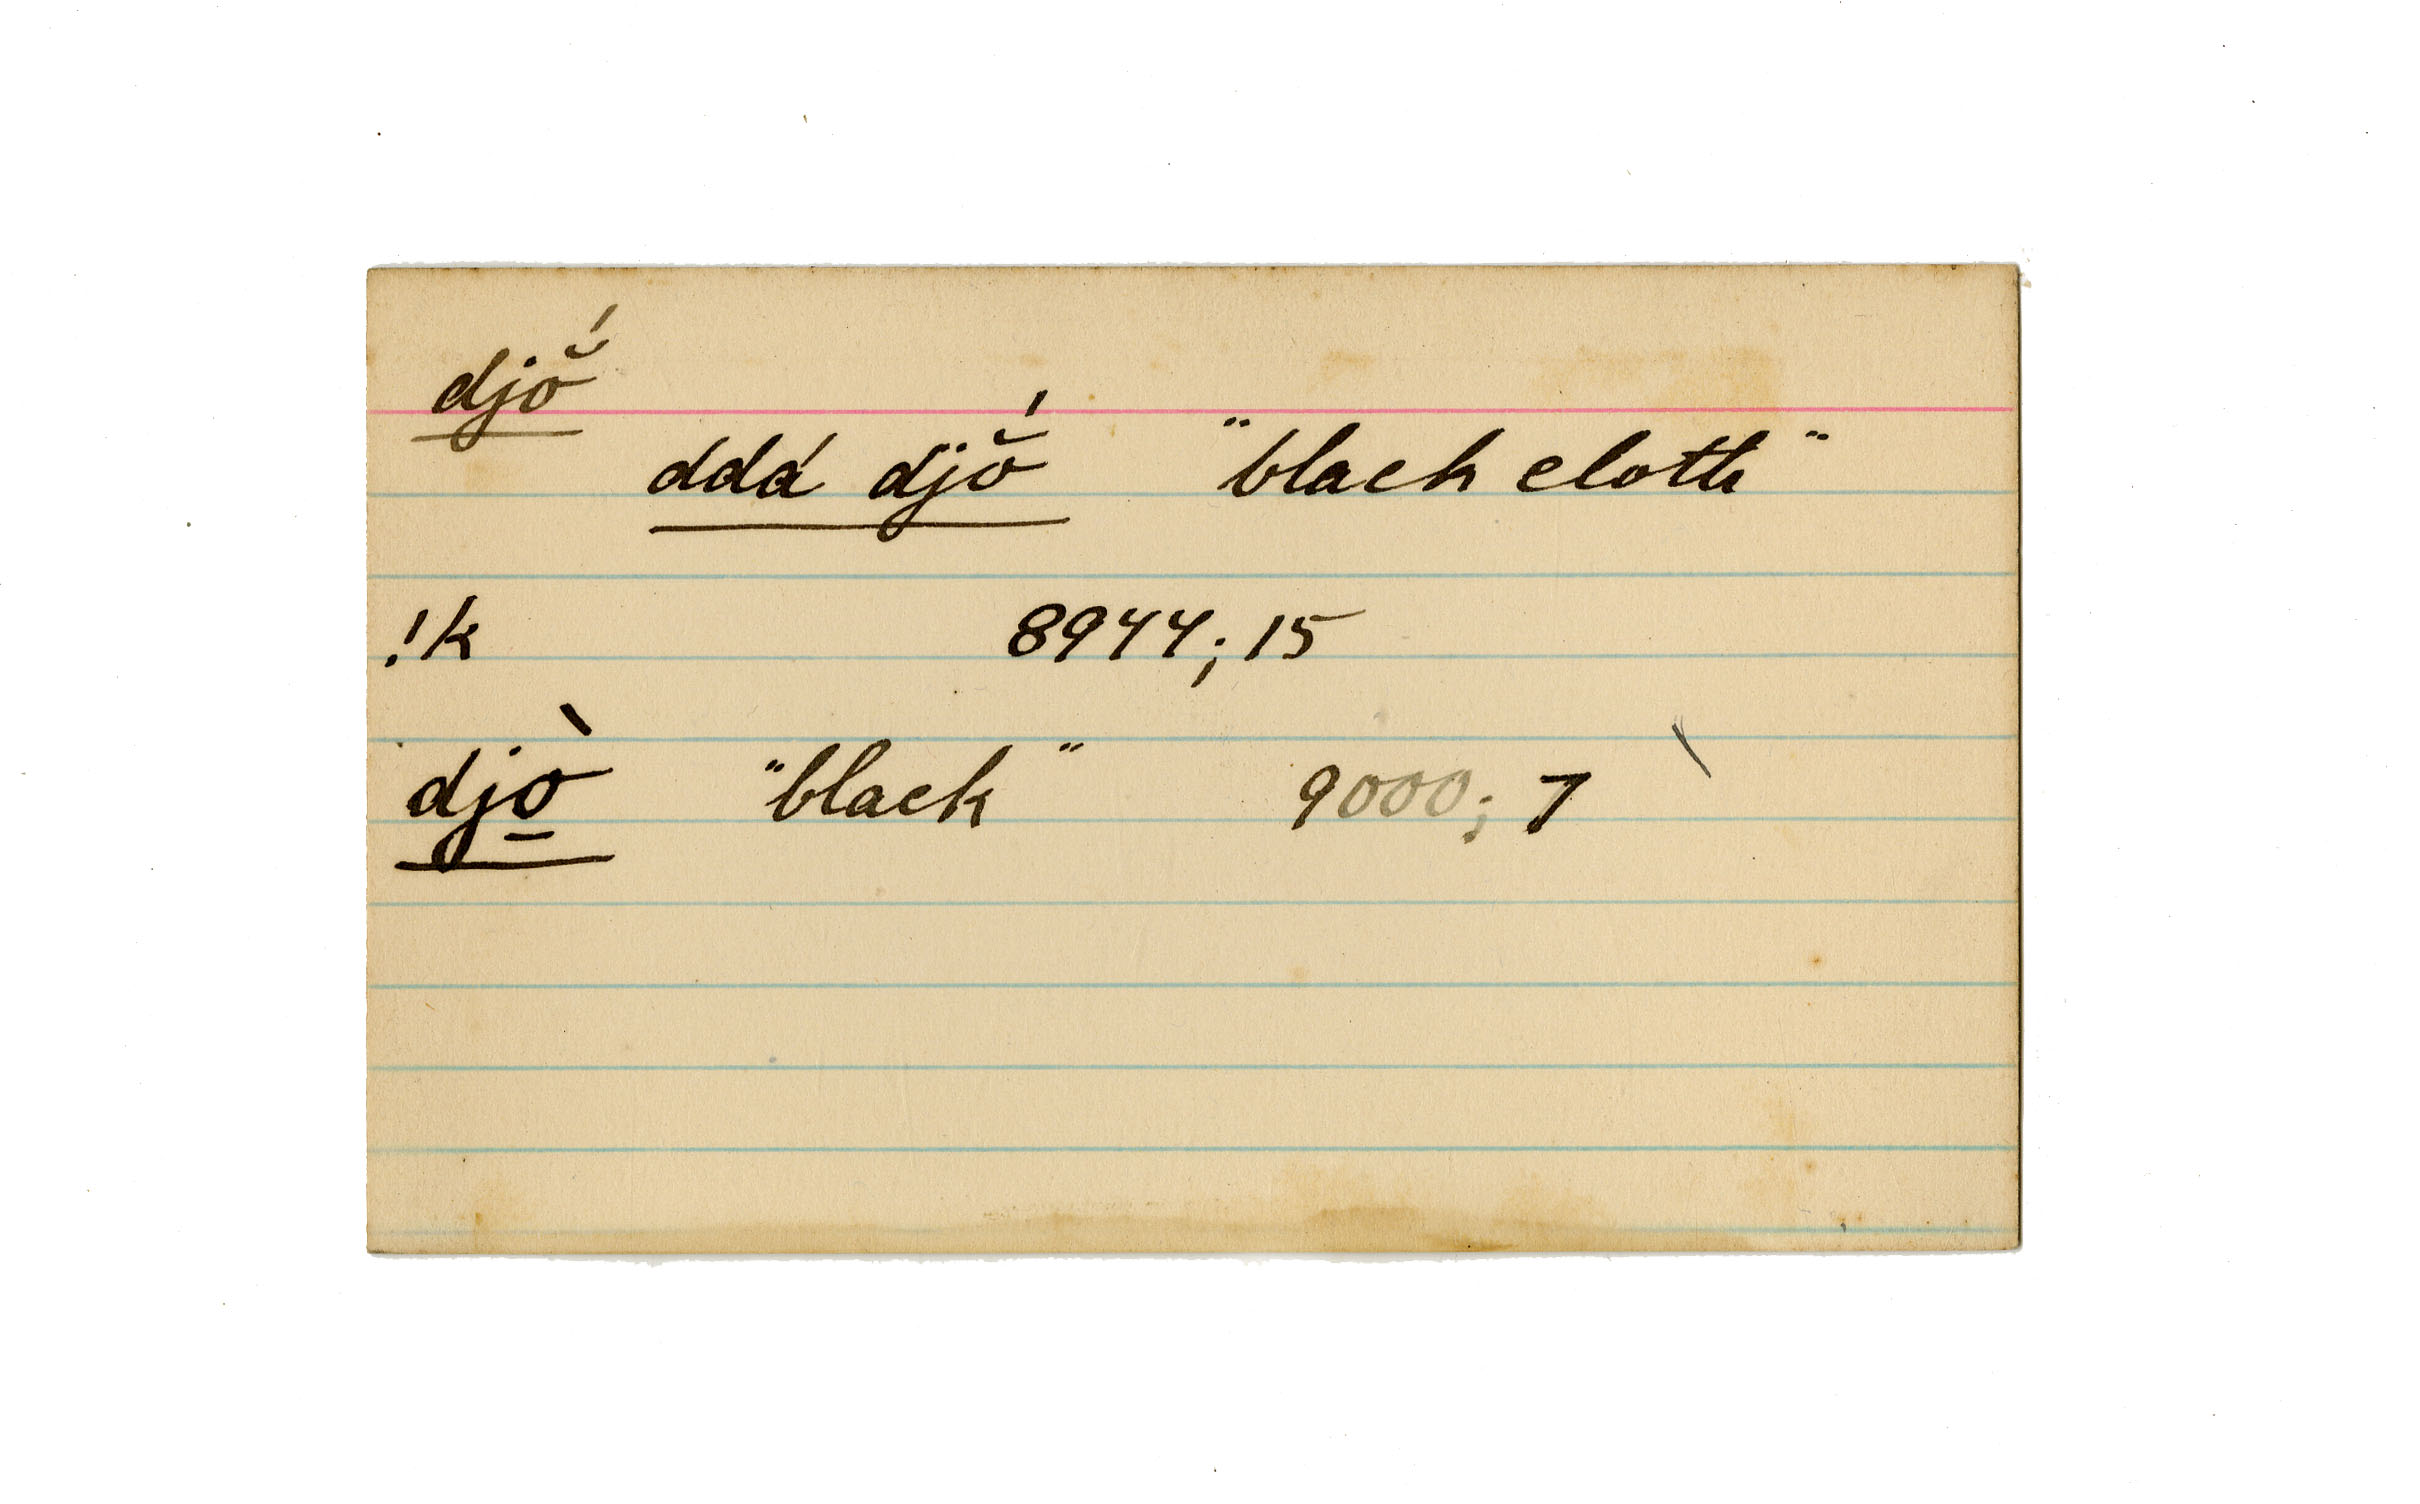 djŏ́
ddá djŏ́ "black cloth"
!k 8944; 15
djò̱ "black" 9000; 7